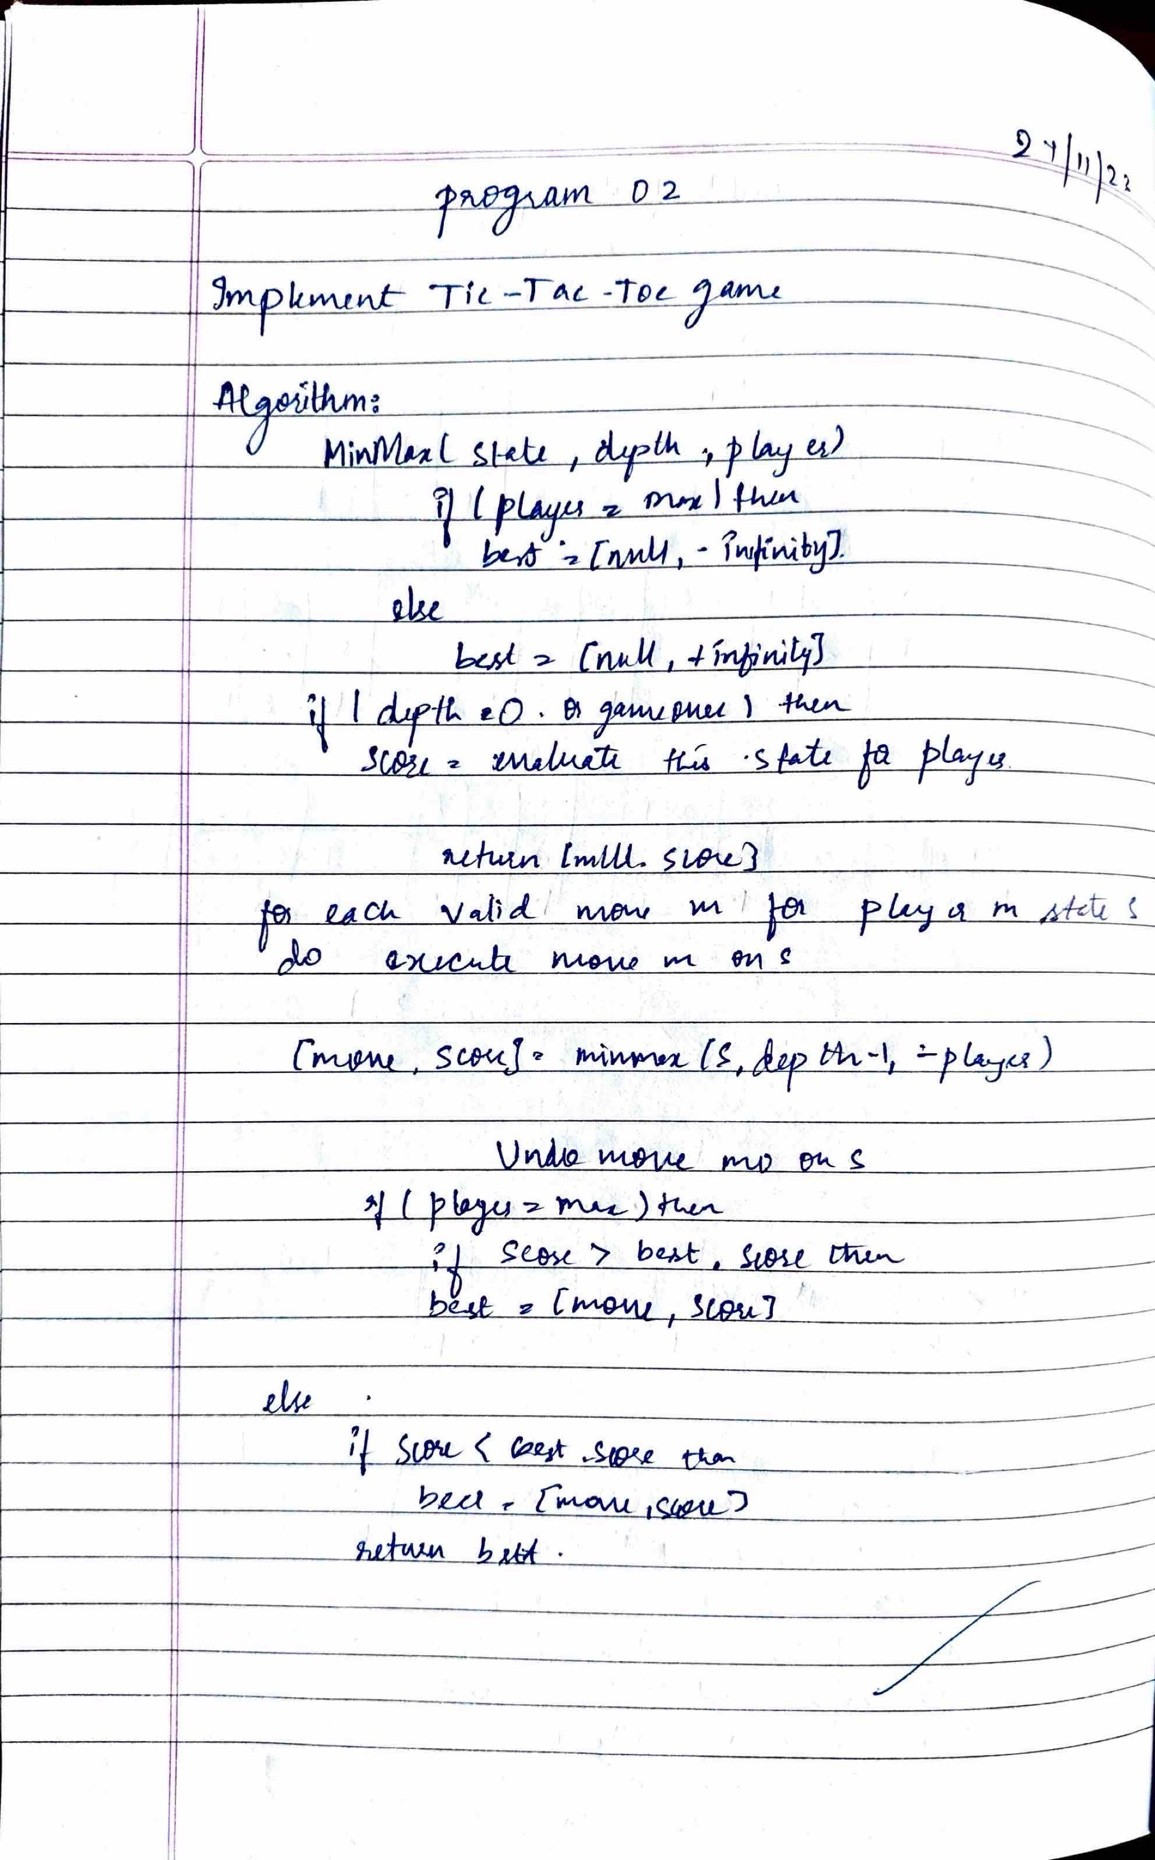 27/11/23
program 02
Implement Tic-Tac-Toe game
Algorithm:
MinMax( state , depth , player)
if ( player = max ) then
best = [null, - infinity].
else
best = [null, +infinity]
if ( depth = 0 . or gameover ) then
score = evaluate this state for player.
return [null. score]
for each valid move m for player in state s
do execute move m on s
[move, score] = minmax (s, depth-1, -player)
Undo move m on s
if ( player = max ) then
if score > best . score then
best = [move, score]
else .
if score < best .score then
best = [move, score]
return best .